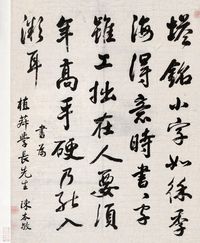 塔銘小字如徐季
海得意時書〻字
雖工拙在人要須
年高手硬乃能入
微耳
書為
植莽學長先生 陳本敬